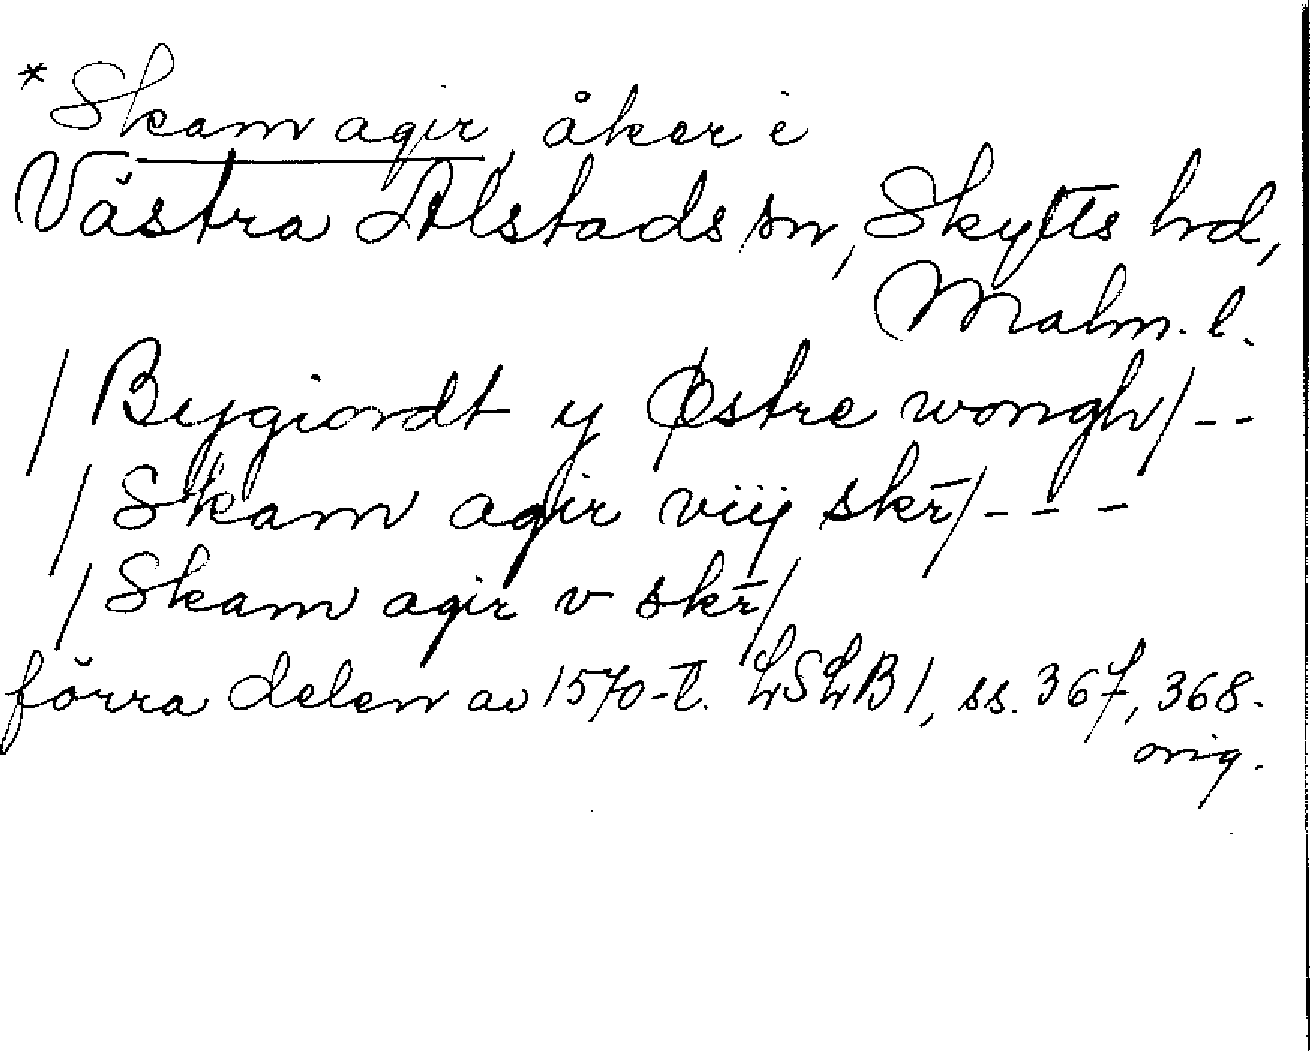 *Skam agir, åker i
Västra Alstads sn, Skytts hd,
Malm. l.
/ Bygiordt y Østre wongh / --
/ Skam agir viij skr̄ / ---
/ Skam agir v skr̄ /
förra delen av 1570-t. LSLB 1, ss. 367, 368.
orig.